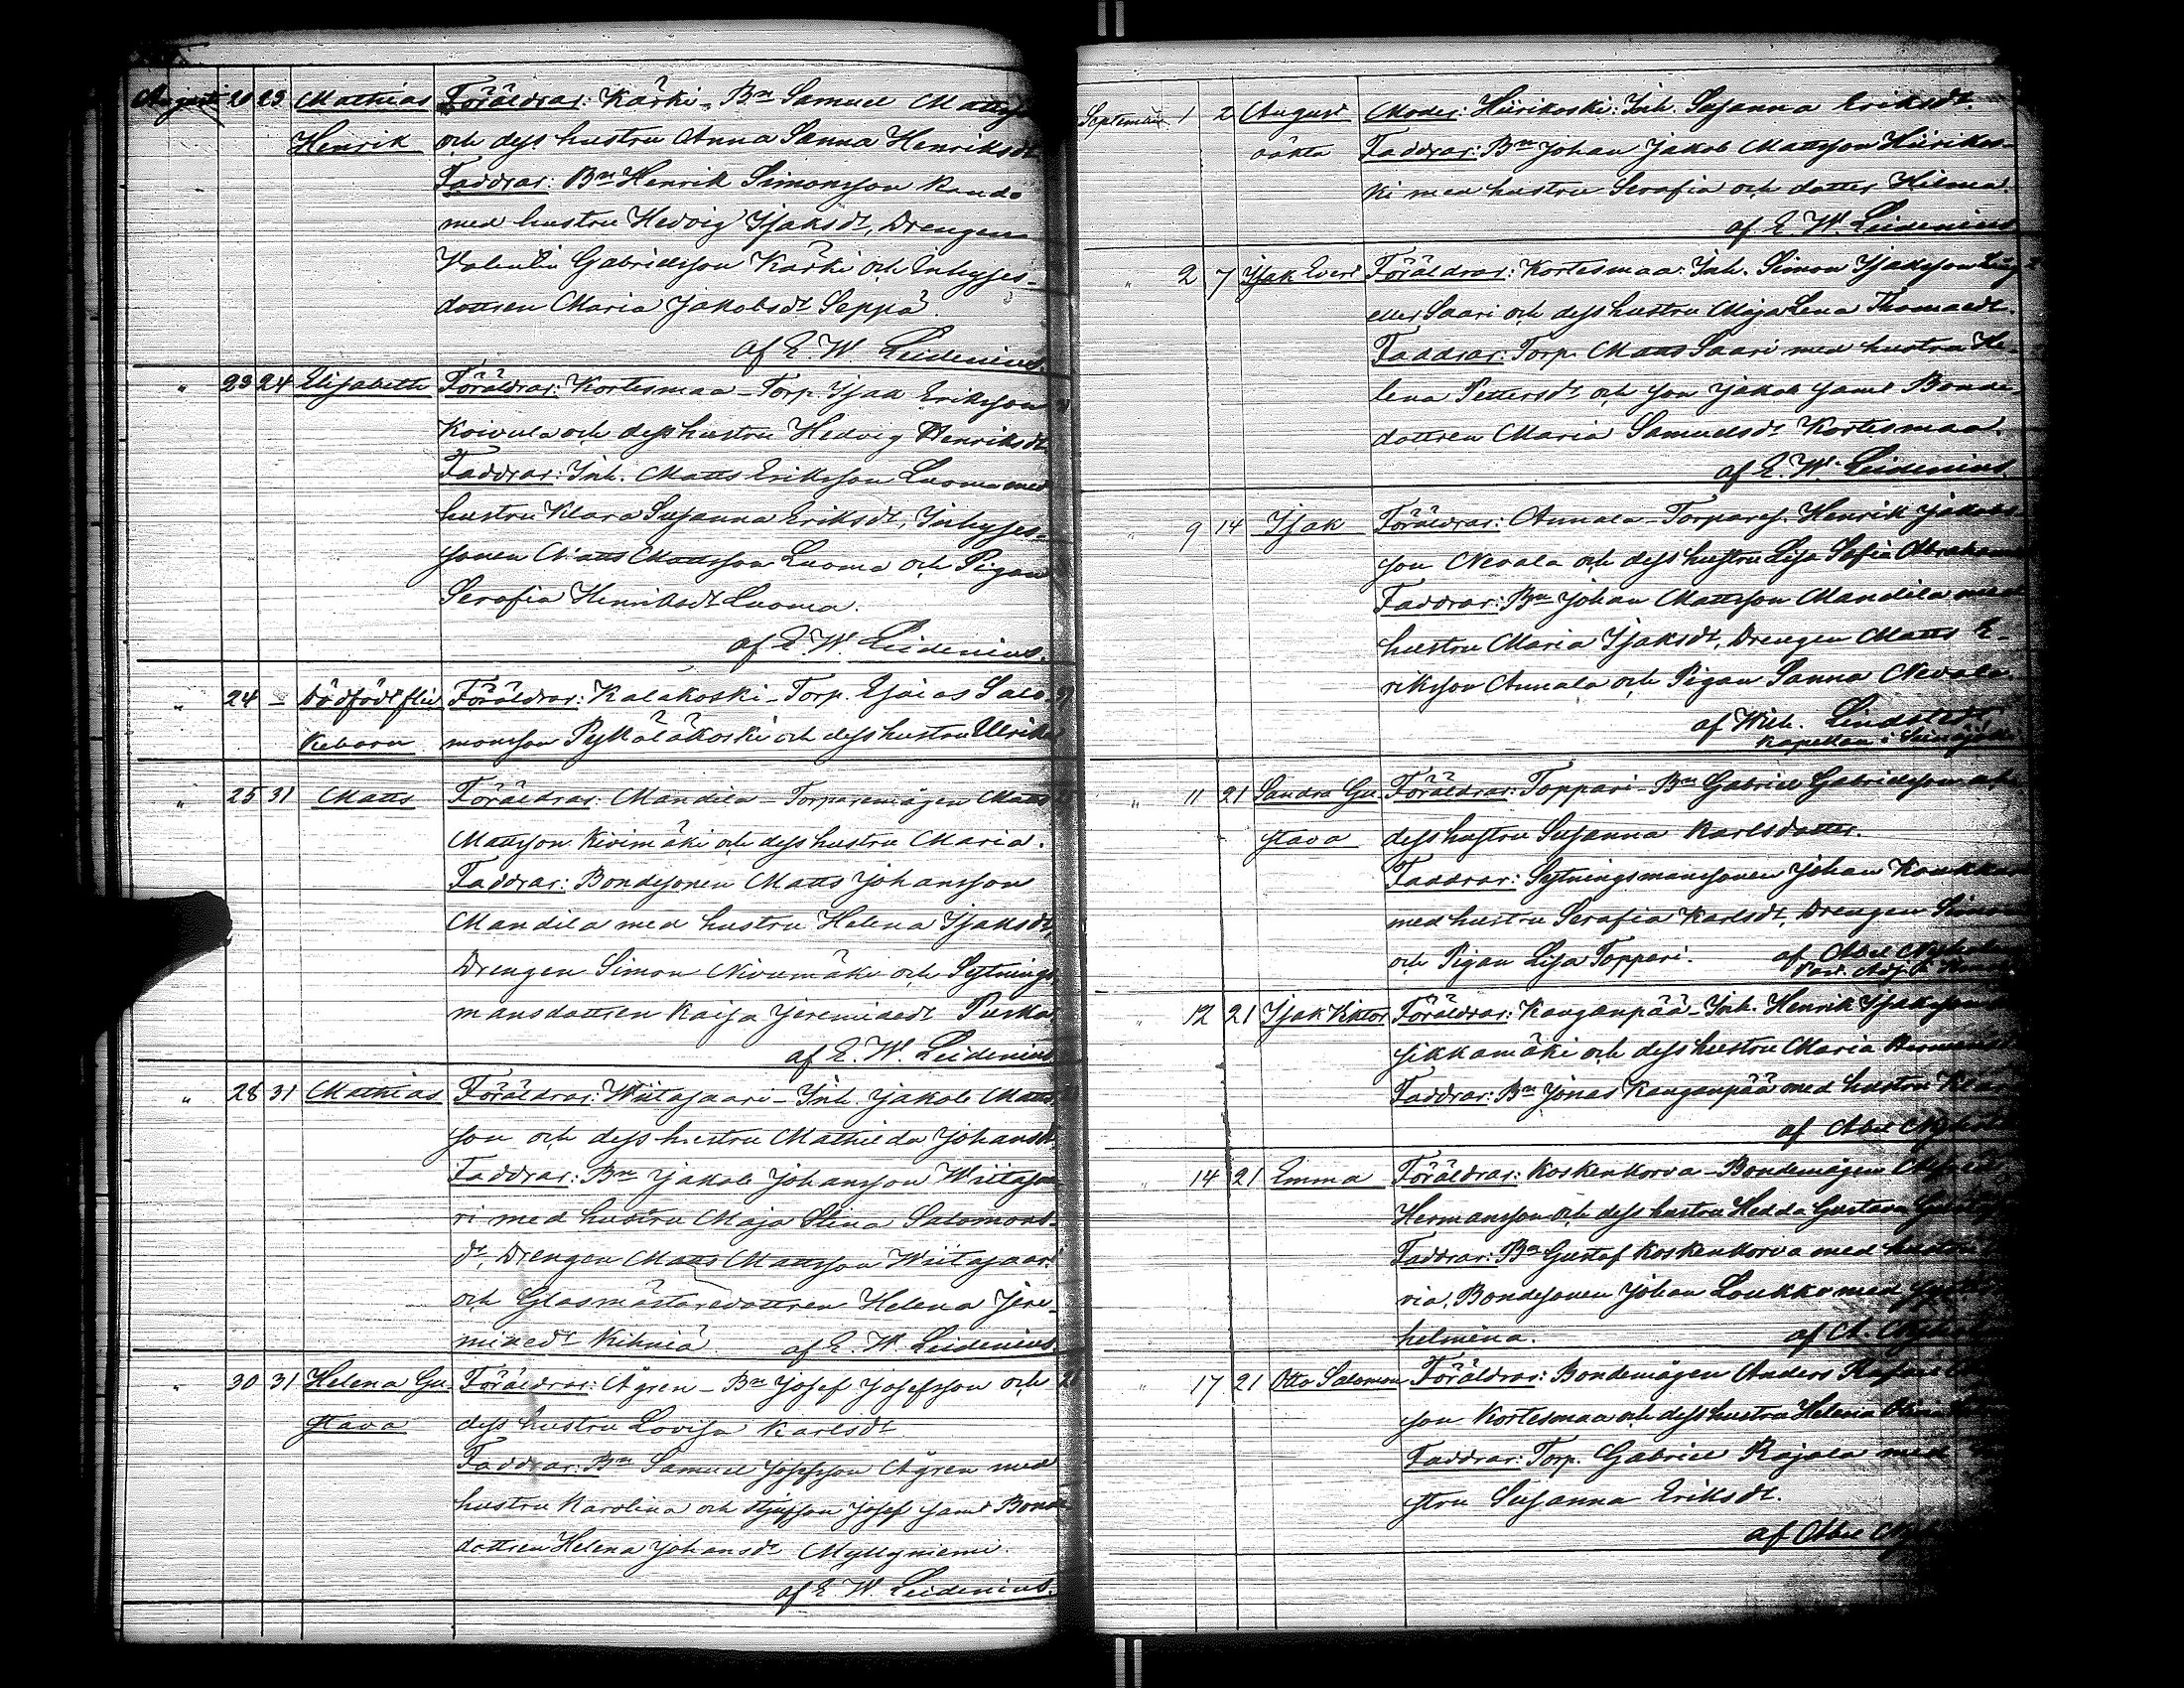 Augusti 20 23 Mathias Föräldrar: Kärki - Bn Samuel Mattss
Henrik och dess hustru Anna Sanna Henriksdt
Faddrar: Bn Henrik Simonsson Rando
med hustru Hedvig Isaksdt, Drengen
Valentin Gabrielsson Kärki och Inhyses-
dottren Maria Jakobsdt Seppä.
af E. W. Leidenius.
" 23 24 Elisabeth Föräldrar: Kortesmaa - Torp. Isak Eriksson
Koivula och dess hustru Hedvig Henriksdt
Faddrar: Inh. Matts Eriksson Luoma med
hustru Klara Susanna Eriksdt, Inhyses-
sonen Matts Mattsson Luoma och Pigan
Serafia Henriksdt Luoma.
af E. W. Leidenius.
" 24 - Dödfödt flic Föräldrar: Kalakoski - Torp. Esaias Salo-
kebarn monsson Pykäläkoski och dess hustru Ulrika
" 25 31 Matts Föräldrar: Mandila - Torparemågen Matts
Mattsson Kivimäki och dess hustru Maria.
Faddrar: Bondesonen Matts Johansson
Mandila med hustru Helena Isaksdt,
Drengen Simon Nivumäki och Sytnings
mansdottren Kaisa Jeremiaedt Puska.
af E. W. Leidenius
" 28 31 Mathias Föräldrar: Wiitasaari - Inh. Jakob Matts
son och dess hustru Mathilda Johansdt
Faddrar: Bn Jakob Johansson Wiitasaa
ri med hustru Maja Stina Salomons-
dt, Drengen Matts Mattsson Wiitasaari
och Glasmästaredottren Helena Jere-
miaedt Kihniä. af E. W. Leidenius.
" 30 31 Helena Gu- Föräldrar: Ågren - Bn Josef Josefsson och
stava dess hustru Lovisa Karlsdt
Faddrar: Bn Samuel Josefsson Ågren med
hustru Karolina och Josef samt Bonde
dottren Helena Johansdt Myllyniemi.
af E. W. Leidenius.
September 1 2 August Moder: Hiirikoski: Inh. Susanna Eriksdt.
oäkta Faddrar: Bn Johan Jakob Mattsson Hiirikos-
ki med hustru Serafia och dotter Hilma.
af E. W. Leidenius
" 2 7 Isak Evert Föräldrar: Kortesmaa: Inh. Simon Isaksson
eller Saari och dess hustru Maja Lena Thomaedt.
Faddrar: Torp. Matts Saari med hustru He-
lena Pettersdt och son Jakob samt Bonde-
dottren Maria Samuelsdt Kortesmaa.
af E. W. Leidenius.
" 9 14 Isak Föräldrar: Annala - Torpares. Henrik Jakobs
son Nevala och dess hustru Lisa Sofia Abrahams
Faddrar: Bn Johan Mattsson Mandila med
hustru Maria Isaksdt, Drengen Matts E-
riksson Annala och Pigan Sanna Nevala.
af Wilh. Lindstedt,
Kapellan i Seinäjoki
" 11 21 Sandra Gu- Föräldrar: Toppari - Bn Gabriel Gabrielsson och
stava dess hustru Susanna Karlsdotter.
Faddrar: Sytningsmanssonen Johan Koukkari
med hustru Serafia Karlsdt, Drengen Simon
och Pigan Lisa Toppari. af Abel Nyholm
" 12 21 Isak Viktor Föräldrar: Kanganpää - Inh. Henrik Isaksson
Sikkamäki och dess hustru Maria Hermansdt
Faddrar: Bn Jonas Kanganpää med hustru Klara
af Abel Nyholm
" 14 21 Emma Föräldrar: Koskenkorva - Bondemågen Alfred
Hermansson och dess hustru Hedda Gustava
Faddrar: Bn Gustaf Koskenkorva med hustru
via, Bondesonen Johan Loukko med
helmina. af A. Nyholm
" 17 21 Otto Salomon Föräldrar: Bondemågen Anders
son Kortesmaa och dess hustru Helena
Faddrar: Torp. Gabriel Rajala med
stru Susanna Eriksdt.
af Abel